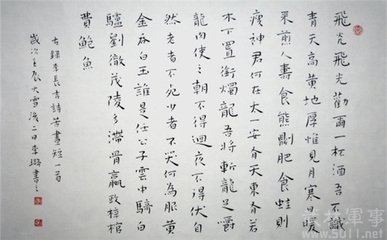 飛光飛光勸爾一杯酒吾不識
青天高黃地厚惟見月寒日暖
來煎人壽食熊則肥食蛙則
瘦神君何在太一安有天東有若
木下置銜燭龍吾將斬龍足嚼
龍肉使之朝不得迴夜不得伏自
然老者不死少者不哭何為服黃
金吞白玉誰是任公子雲中騎白
驢劉徹茂陵多滯骨嬴政梓棺
費鮑魚
右錄李長吉詩苦晝短一首
歲次壬辰大雪後二日李璐書之
軍事